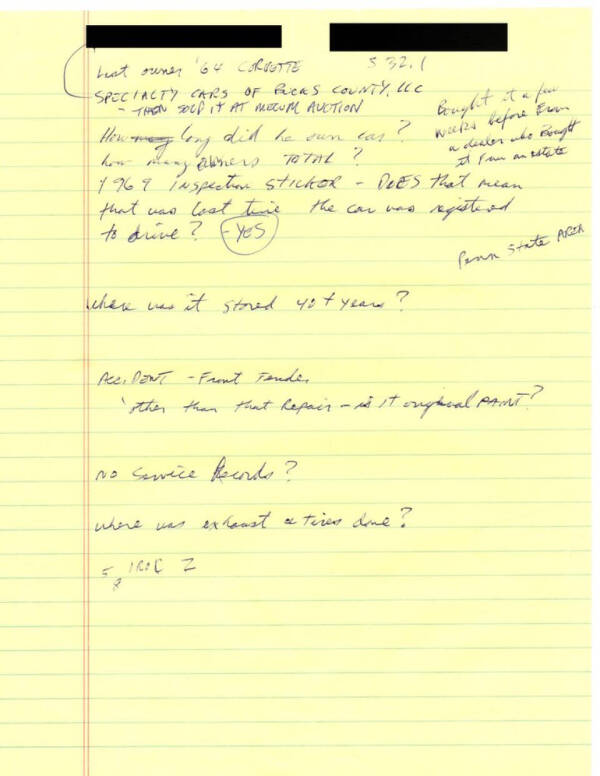 Last owner '64 CORVETTE
S 32.1
SPECIALTY CARS OF BUCKS COUNTY, LLC
- THEN SOLD IT AT MECUM AUCTION
Bought it a few
weeks before from
a dealer who Bought
it from an estate
How many long did he own car?
how many owners TOTAL?
1969 INSPECTION STICKER - DOES that mean
that was last time the car was registered
to drive? - YES
Penn State AREA
Where was it stored 40+ years?
ACCIDENT - Front Fender
other than that Repair - is it original PAINT?
NO Service Records?
where was exhaust & tires done?
IROC Z